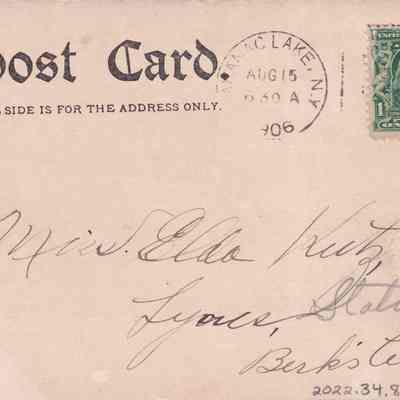 Post Card.
SIDE IS FOR THE ADDRESS ONLY.
RANAC LAKE, N.Y.
AUG 15
6 30 A
1906
1
Miss. Elda Kutz,
Lyons, Stati
Berk's Co
2022.34.8